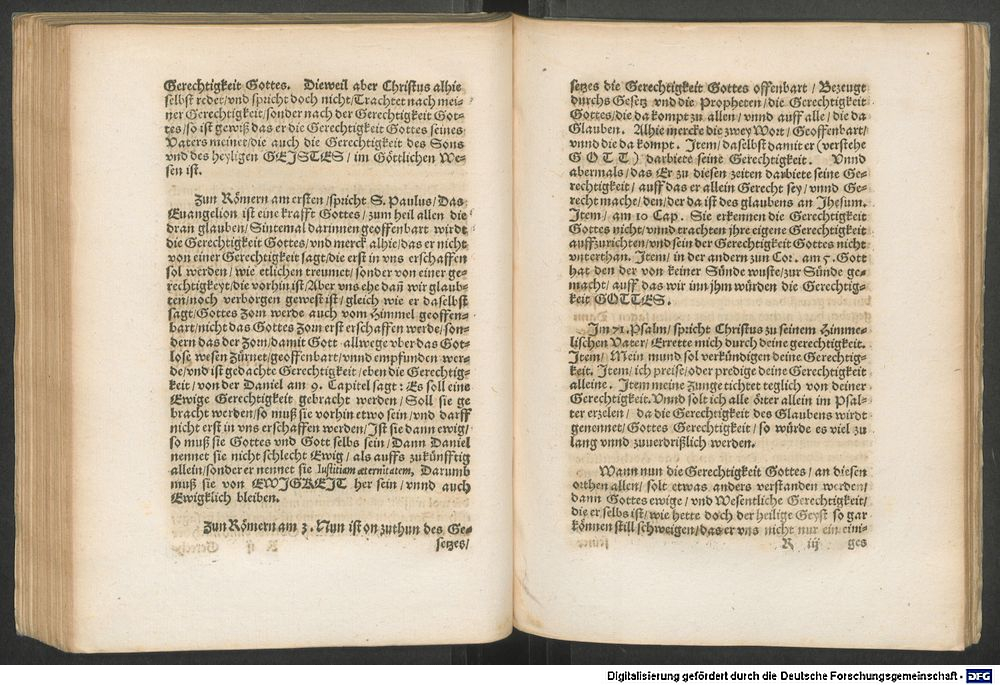 Gerechtigkeit Gottes. Dieweil aber Christus alhie
selbst redet/vnd spricht doch nicht/Trachtet nach mei-
ner Gerechtigkeit/sonder nach der Gerechtigkeit Got-
tes/so ist gewiß das er die Gerechtigkeit Gottes seines
Vaters meinet/die auch die Gerechtigkeit des Sons
vnd des heyligen GEISTES/ im Göttlichen We-
sen ist.
Zun Römern am ersten/spricht S. Paulus/Das
Euangelion ist eine krafft Gottes/zum heil allen die
dran glauben/Sintemal darinnen geoffenbart wirdt
die Gerechtigkeit Gottes/vnd merck alhie/das er nicht
von einer Gerechtigkeit sagt/die erst in vns erschaffen
sol werden/ wie etlichen treumet/sonder von einer ge-
rechtigkeyt/die vorhin ist/Aber vns ehe dañ wir glaub-
ten/noch verborgen gewest ist/gleich wie er daselbst
sagt/Gottes Zorn werde auch vom Himmel geoffen-
bart/nicht das Gottes Zorn erst erschaffen werde/son-
dern das der Zorn/damit Gott allwege vber das Got-
lose wesen Zürnet/geoffenbart/vnnd empfunden wer-
de/vnd ist gedachte Gerechtigkeit/eben die Gerechtig-
keit/von der Daniel am 9. Capitel sagt: Es soll eine
Ewige Gerechtigkeit gebracht werden/Soll sie ge
bracht werden/so muß sie vorhin etwo sein/vnd darff
nicht erst in vns erschaffen werden/Ist sie dann ewig/
so muß sie Gottes vnd Gott selbs sein/Dann Daniel
nennet sie nicht schlecht Ewig/als auffs zukünfftig
allein/sonder er nennet sie Iustitiam æternitatem, Darumb
muß sie von EWIGKEIT her sein/vnnd auch
Ewigklich bleiben.
Zun Römern am 3. Nun ist on zuthun des Ge-
setzes/
setzes die Gerechtigkeit Gottes offenbart/Bezeugt
durchs Gesetz vnd die Propheten/die Gerechtigkeit
Gottes/die da kompt zu allen/vnnd auff alle/die da
Glauben. Alhie mercke die zwey Wort/Geoffenbart/
vnnd die da kompt. Item/daselbst damit er (verstehe
GOTT) darbiete seine Gerechtigkeit. Vnnd
abermals/das Er zu diesen zeiten darbiete seine Ge-
rechtigkeit/auff das er allein Gerecht sey/vnnd Ge-
recht mache/den/der da ist des glaubens an Jhesum.
Item/am 10 Cap. Sie erkennen die Gerechtigkeit
Gottes nicht/vnnd trachten jhre eigene Gerechtigkeit
auffzurichten/vnd sein der Gerechtigkeit Gottes nicht
vnterthan. Item/in der andern zun Cor. am 5. Gott
hat den der von keiner Sünde wuste/zur Sünde ge-
macht/auff das wir inn jhm würden die Gerechtig-
keit GOTTES.
Im 71. Psalm/spricht Christus zu seinem Himme-
lischen Vater/Errette mich durch deine gerechtigkeit.
Item/Mein mund sol verkündigen deine Gerechtig-
keit. Item/ich preise/oder predige deine Gerechtigkeit
alleine. Item meine Zunge tichtet teglich von deiner
Gerechtigkeit. Vnnd solt ich alle örter allein im Psal-
ter erzelen/ da die Gerechtigkeit des Glaubens wirdt
genennet/Gottes Gerechtigkeit/so würde es viel zu
lang vnnd zuuerdrißlich werden.
Wann nun die Gerechtigkeit Gottes/an diesen
orthen allen/solt etwas anders verstanden werden/
dann Gottes ewige/vnd Wesentliche Gerechtigkeit/
die er selbs ist/wie hette doch der heilige Geyst so gar
können still schweigen/das er vns nicht nur ein eini-
K iij ges
Digitalisierung gefördert durch die Deutsche Forschungsgemeinschaft - DFG